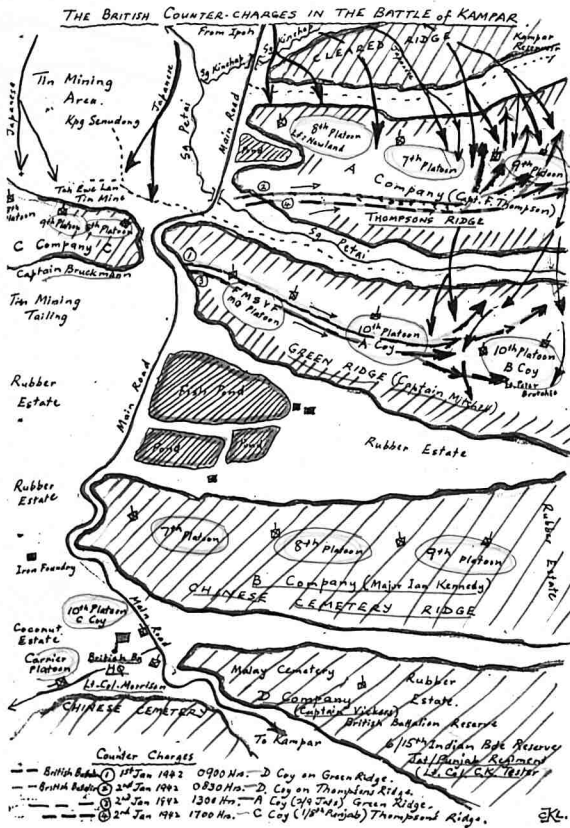 THE BRITISH COUNTER-CHARGES IN THE BATTLE of KAMPAR
From Ipoh
Sg Kinchap
Sg Kinchap
CLEARED RIDGE
Japanese
Kampar
Reservoir
Tin Mining
Area.
Kpg Senudong
Japanese
Japanese
Sg Petai
Main Road
8th Platoon
Lt. Newland
7th Platoon
9th
Platoon
A
Company (Capt. F. Thompson)
Pond
②
④
THOMPSONS RIDGE
Sg Petai
Tah Ewe Lan
Tin Mine
Platoon
9th Platoon
8th Platoon
C Company C
Captain Bruckmann
Tin Mining
Tailing
①
③
FMSVF
MG Platoon
10th Platoon
A Coy
10th Platoon
B Coy
GREEN RIDGE (Captain Mitchell)
Main Road
Rubber
Estate
Fish Pond
Pond
Pond
Rubber Estate
Rubber
Estate
Rubber
Estate
7th
Platoon
8th
Platoon
9th
Platoon
B Company (Major Ian Kennedy)
CHINESE
CEMETERY RIDGE
Iron Foundry
10th Platoon
C Coy
Main Road
Coconut
Estate
Carrier
Platoon
British Bn
HQ
Lt.Col.Morrison
CHINESE CEMETERY
Malay Cemetery
Rubber
Estate.
D Company
(Captain Vickers)
British Battalion Reserve
6/15th Indian Bde Reserve
Jat/Punjab Regiment
(Lt. Col C.K. Tester
To Kampar
Counter Charges
British Battalion ① 1st Jan 1942 0900 Hr. - D Coy on Green Ridge.
British Battalion ② 2nd Jan 1942 0830 Hr. - D. Coy on Thompsons Ridge.
③ 2nd Jan 1942 1300 Hr. - A Coy (2/9 Jats) Green Ridge.
④ 2nd Jan 1942 1700 Hr. - C Coy (1/8th Punjab) Thompsons Ridge.
CKL.